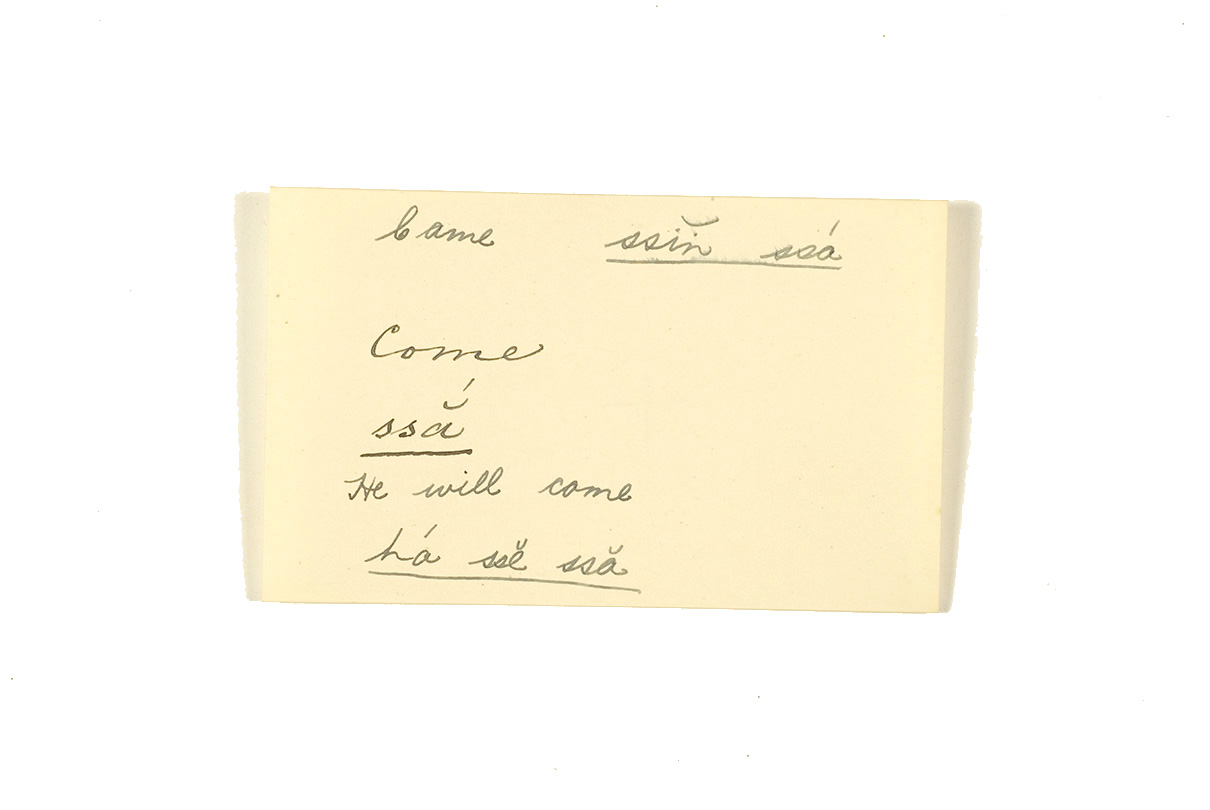 Came ssĭn ssá
Come
ssắ
He will come
há ssĕ ssă